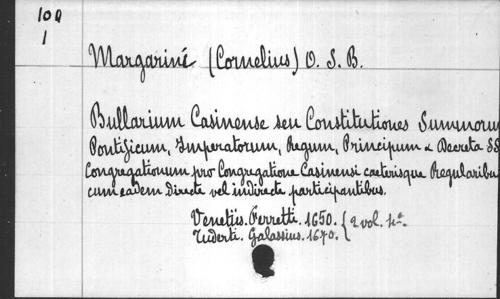 10 Q
1
Margarini (Cornelius) O. S. B.
Bullarium Casinense seu Constitutiones Summoru
Pontificum, Imperatorum, Regum, Principum & Decreta SS
Congregationum pro Congregatione Casinensi caeterisque Regularibu
cum eadem directe vel indirecte participantibus.
Venetiis. Ferretti. 1650. { 2 vol. 4º.
Tuderti. Galassius. 1670.